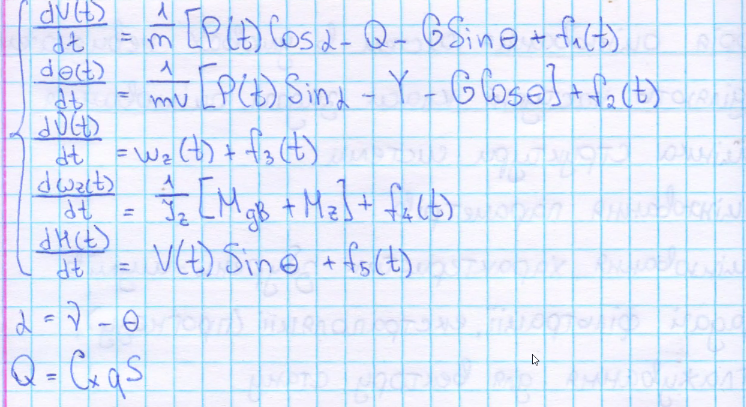 dV(t)/dt = 1/m [P(t) Cos α - Q - G Sin θ + f₁(t)
dθ(t)/dt = 1/mv [P(t) Sin α - Y - G Cos θ] + f₂(t)
dϑ(t)/dt = ω_z(t) + f₃(t)
dω_z(t)/dt = 1/J_z [M_gB + M_z] + f₄(t)
dH(t)/dt = V(t) Sin θ + f₅(t)
α = ϑ - θ
Q = C_x q S